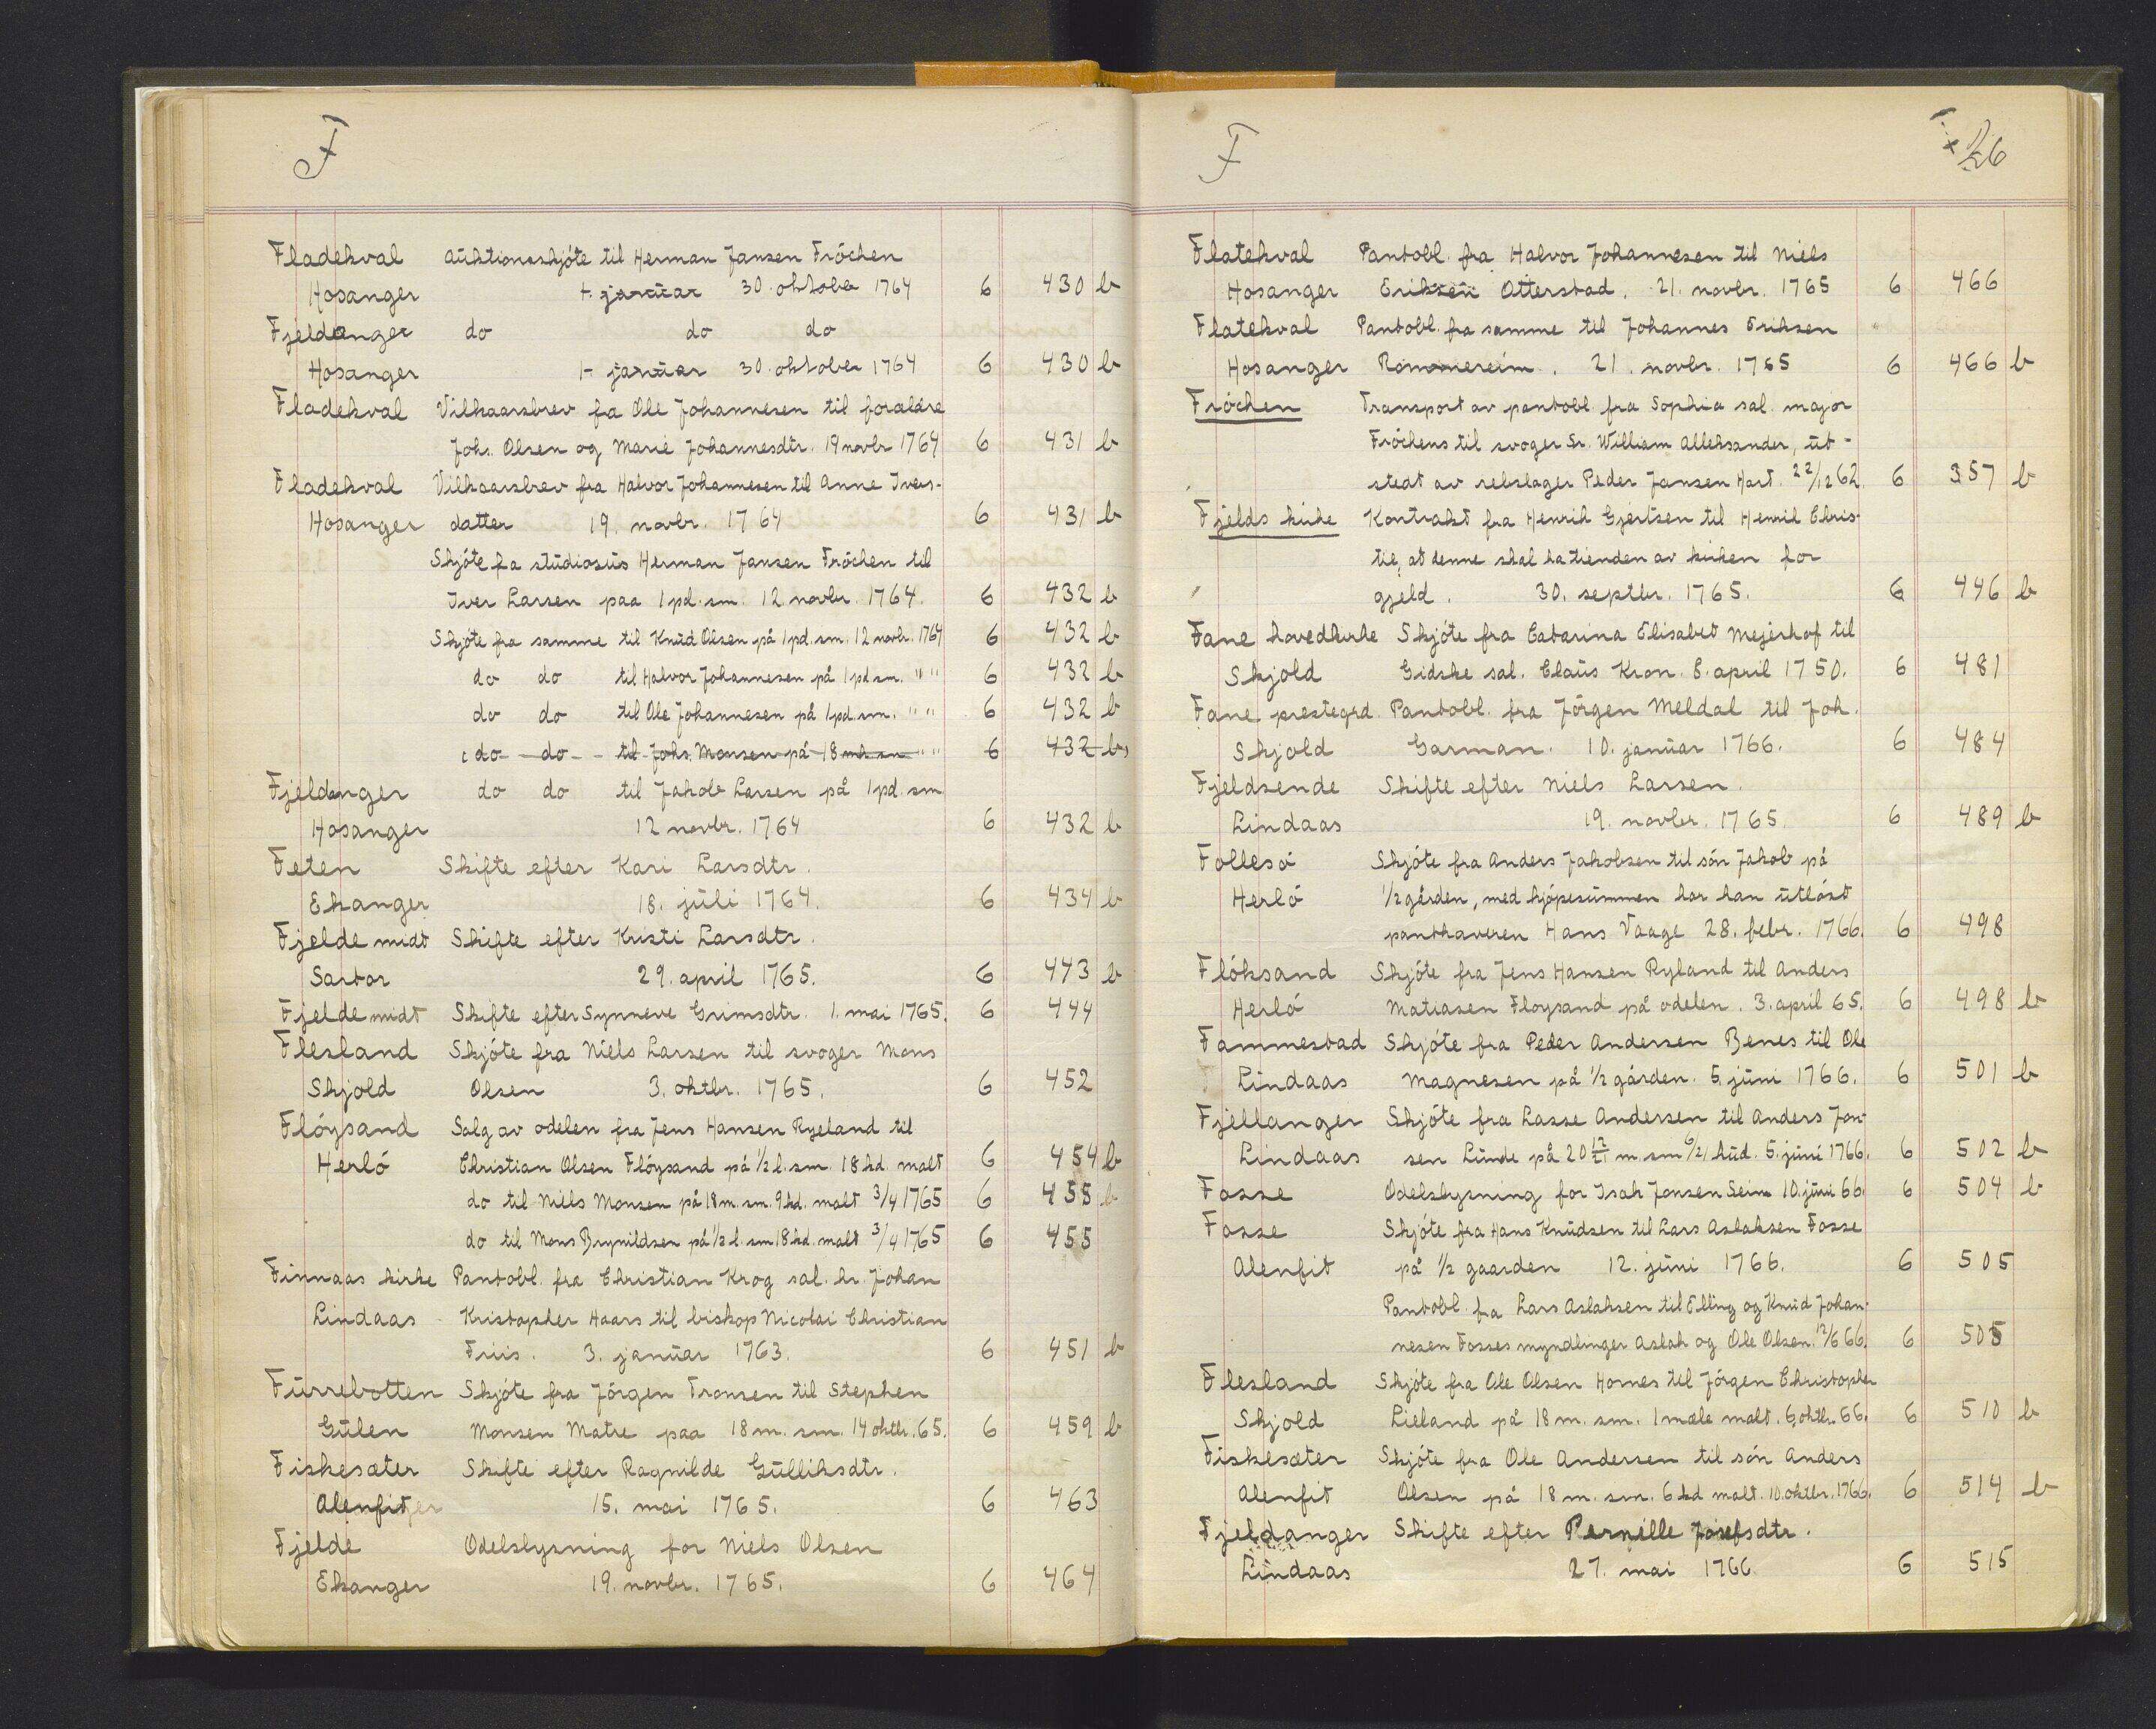 F
Fladekval auktionsskjöte til Herman Jansen Fröchen
Hosanger 1. januar 30. oktober 1764 6 430 b
Fjeldanger do do do
Hosanger 1. januar 30. oktober 1764 6 430 b
Fladekval Vilkaarsbrev fa Ole Johannesen til forældre
Johs. Olsen og Marie Johannesdtr. 19 novbr 1764 6 431 b
Fladekval Vilkaarsbrev fra Halvor Johannesen til Anne Ivers-
Hosanger datter 19. novbr. 1764 6 431 b
Skjöte fa studiosus Herman Jansen Fröchen til
Iver Larsen paa 1 pd. sm. 12. novbr. 1764. 6 432 b
Skjöte fra samme til Knud Olsen på 1 pd. sm. 12 novbr. 1764 6 432 b
do do til Halvor Johannesen på 1 pd sm. " " 6 432 b
do do til Ole Johannesen på 1 pd. sm. " " 6 432 b
do do til Johs. Monsen på 18 mk sm " " 6 432 b
Fjeldanger do do til Jakob Larsen på 1 pd. sm
Hosanger 12 novbr. 1764 6 432 b
Feten Skifte efter Kari Larsdtr.
Ekanger 18. juli 1764. 6 434 b
Fjelde midt Skifte efter Kristi Larsdtr.
Sartor 29. april 1765. 6 443 b
Fjelde midt Skifte efter Synneve Grimsdtr. 1. mai 1765. 6 444
Flesland Skjöte fra Niels Larsen til svoger Mons
Skjold Olsen 3. oktbr. 1765. 6 452
Flöysand Salg av odelen fra Jens Hansen Ryeland til
Herlö Christian Olsen Flöysand på ½ l. sm. 18 kd. malt 6 454 b
do til Niels Monsen på 18 m. sm. 9 kd. malt 3/4 1765 6 455 b
do til Mons Brynildsen på ½ l. sm 18 kd. malt 3/4 1765 6 455
Finnaas kirke Pantobl. fra Christian Krog sal. hr. Johan
Lindaas Kristopher Haars til biskop Nicolai Christian
Friis. 3. januar 1763. 6 451 b
Furrebotten Skjöte fra Jörgen Tronsen til Stephen
Gulen Monsen Matre paa 18 m. sm. 14 oktbr. 65. 6 459 b
Fiskesæter Skifte efter Ragnilde Gulliksdtr.
Alenfit 15. mai 1765. 6 463
Fjelde Odelslysning for Niels Olsen
Ekanger 19. novbr. 1765. 6 464
F 26
Flatekval Pantobl. fra Halvor Johannesen til Niels
Hosanger Eriksen Otterstad. 21. novbr. 1765 6 466
Flatekval Pantobl. fra samme til Johannes Eriksen
Hosanger Rommereim. 21. novbr. 1765 6 466 b
Fröchen Transport av pantobl. fra Sophia sal. major
Fröchens til svoger Sr. William Alleksander, ut-
stedt av rebslager Peder Jansen Hart. 22/12 62. 6 357 b
Fjelds kirke Kontrakt fra Henrik Gjertsen til Henrik Chris-
tie, at denne skal ha tienden av kirken for
gjeld. 30. septbr. 1765. 6 446 b
Fane hovedkirke Skjöte fra Catarina Elisabet Mejerhof til
Skjold Gidske sal. Claus Kron. 8. april 1750. 6 481
Fane prestegrd. Pantobl. fra Jörgen Meldal til Joh.
Skjold Garman. 10. januar 1766. 6 484
Fjeldsende Skifte efter Niels Larsen.
Lindaas 19. novbr. 1765. 6 489 b
Follesö Skjöte fra Anders Jakobsen til sön Jakob på
Herlö ½ gården, med kjöpesummen har han utlöst
panthaveren Hans Vaage 28. febr. 1766. 6 498
Flöksand Skjöte fra Jens Hansen Ryland til Anders
Herlö Matiasen Floysand på odelen. 3. april 65. 6 498 b
Fammestad Skjöte fra Peder Andersen Benes til Ole
Lindaas Magnesen på ½ gården. 5. juni 1766. 6 501 b
Fjellanger Skjöte fra Lasse Andersen til Anders Jon-
Lindaas sen Lunde på 20 12/21 m. sm 6/21 hud. 5. juni 1766. 6 502 b
Fosse Odelslysning for Isak Jonsen Seim 10. juni 66. 6 504 b
Fosse Skjöte fra Hans Knudsen til Lars Aslaksen Fosse
Alenfit på ½ gaarden 12. juni 1766. 6 505
Pantobl. fra Lars Aslaksen til Elling og Knud Johan-
nesen Fosses myndlinger Aslak og Ole Olsen. 12/6 66. 6 505
Flesland Skjöte fra Ole Olsen Hornes til Jörgen Christopher
Skjold Lieland på 18 m. sm. 1 mæle malt. 6. oktbr. 66. 6 510 b
Fiskesæter Skjöte fra Ole Andersen til sön Anders
Alenfit Olsen på 18 m. sm. 6 kd malt. 10. oktbr. 1766. 6 514 b
Fjeldanger Skifte efter Pernille Josefsdtr.
Lindaas 27. mai 1766. 6 515